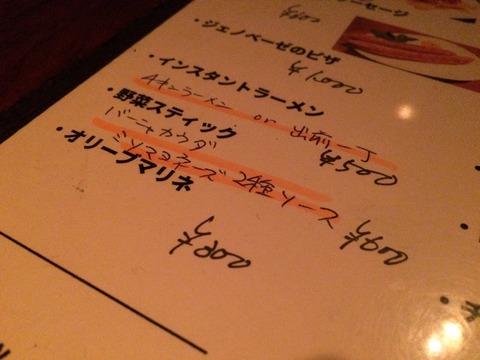 ーセージ
・ジェノベーゼのピザ
¥1,000
・インスタントラーメン
or 出前一丁
¥500
・野菜スティック
バーニャカウダ
ミソマヨネーズ 2種ソース
¥600
・オリーブマリネ